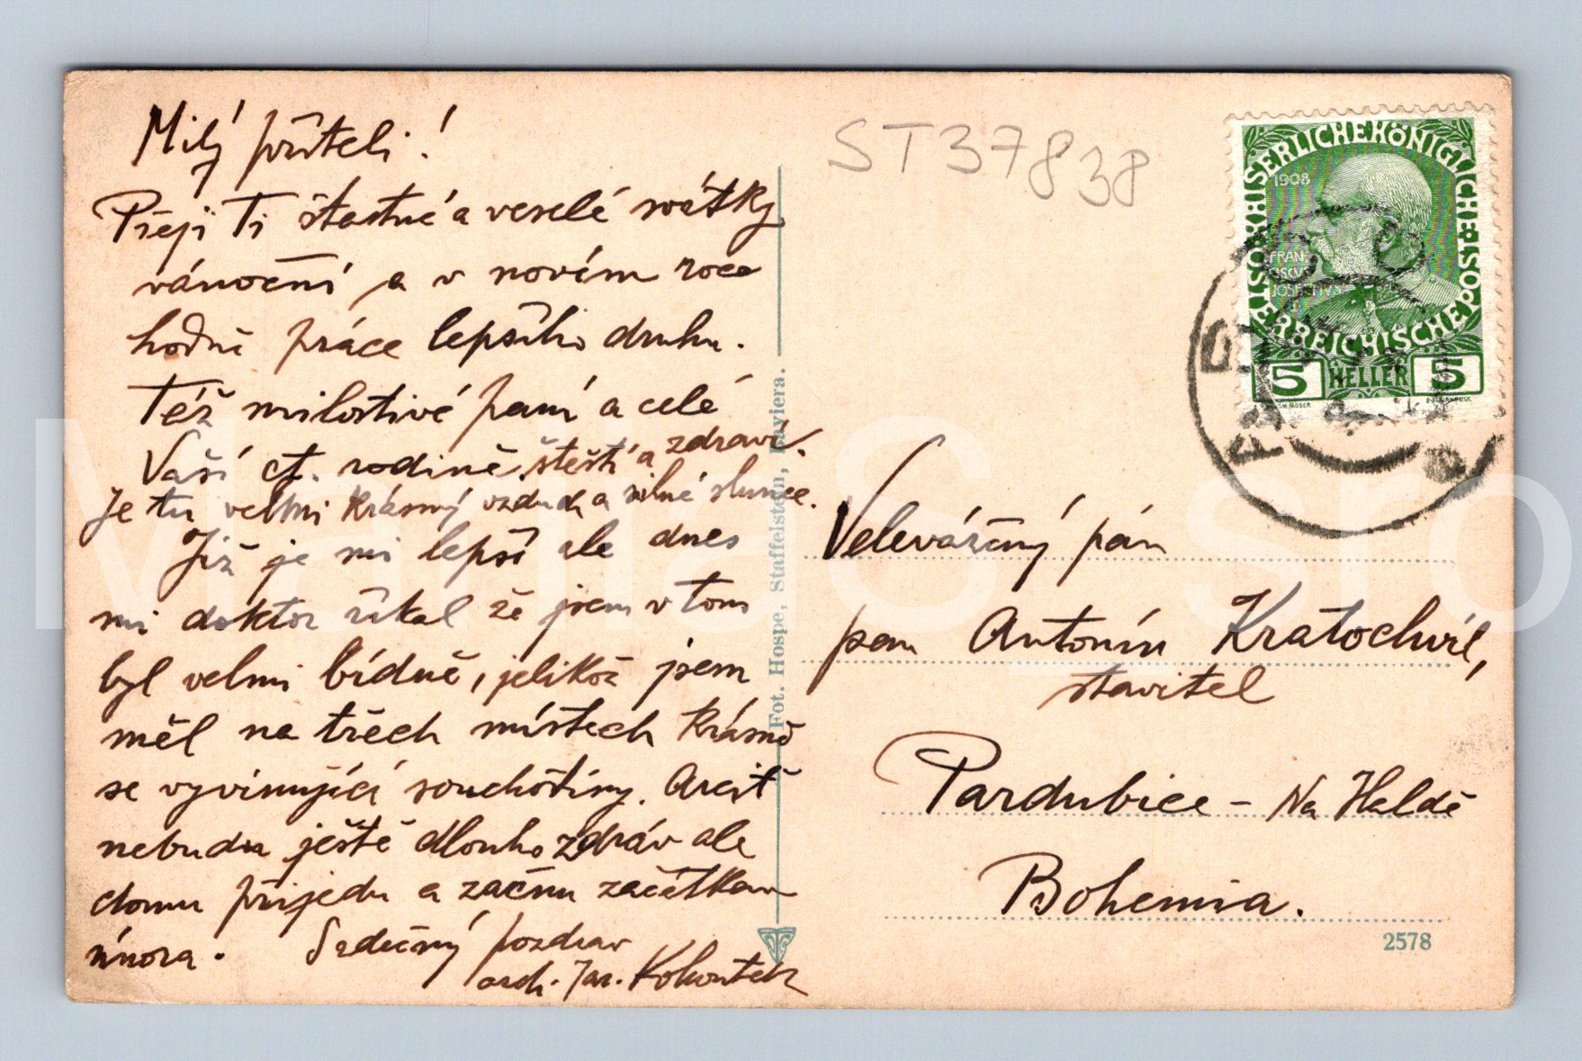 Milý příteli!
Přeji Ti štastné a veselé svátky
vánoční a v novém roce
hodně práce lepšího druhu.
Též milostivé paní a celé
Vaší ct. rodině štěstí a zdraví.
Je tu velmi krásný vzduch a silné slunce.
Již je mi lepší ale dnes
mi doktor říkal že jsem v tom
byl velmi bídně, jelikož jsem
měl na třech místech krásně
se vyvinující souchotiny. Arciť
nebudu ještě dlouho zdráv ale
domu přijedu a začnu začátkem
února. Srdečný pozdrav
arch. Jar. Kohoutek
Fot. Hospe, Staffelstein, Baviera.
ST37838
KAISERLICHE KÖNIGLICHE ÖSTERREICHISCHE POST
1908
FRAN
CISCVS
JOSEPHVS I
5 HELLER 5
Velevážený pán
pan Antonín Kratochvíl,
stavitel
Pardubice - Na Haldě
Bohemia.
2578